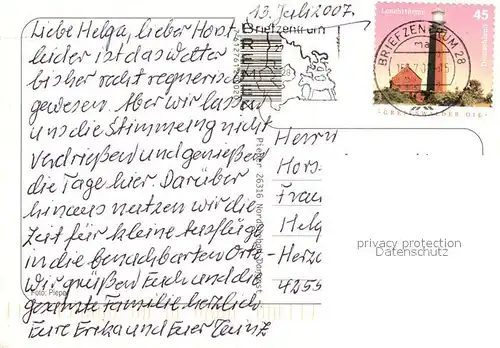 13. Juli 2007.
Liebe Helga, lieber Horst,
leider ist das Wetter
bisher recht regnerisch
gewesen. Aber wir lassen
uns die Stimmung nicht
verdrießen und genießen
die Tage hier. Darüber
hinaus nutzen wir die
Zeit für kleine Ausflüge
in die benachbarten Orte.
Wir grüßen Euch und die
gesamte Familie herzlich
Eure Erika und Euer Heinz
Foto: Pieper
Briefzentrum
BREMEN
28
Leuchttürme
45
Deutschland
GREIFSWALDER OIE
BRIEFZENTRUM 28
Pieper 26316 Nordseebad Dangast
Herrn
Hors
Frau
Helg
Herzo
4255
privacy protection
Datenschutz